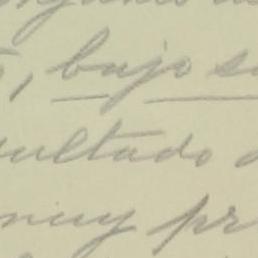 bajo
sultado
muy pr